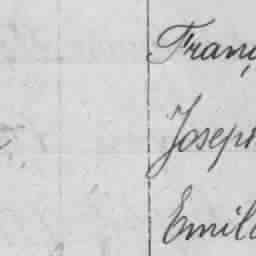 Franç
Joseph
Emile